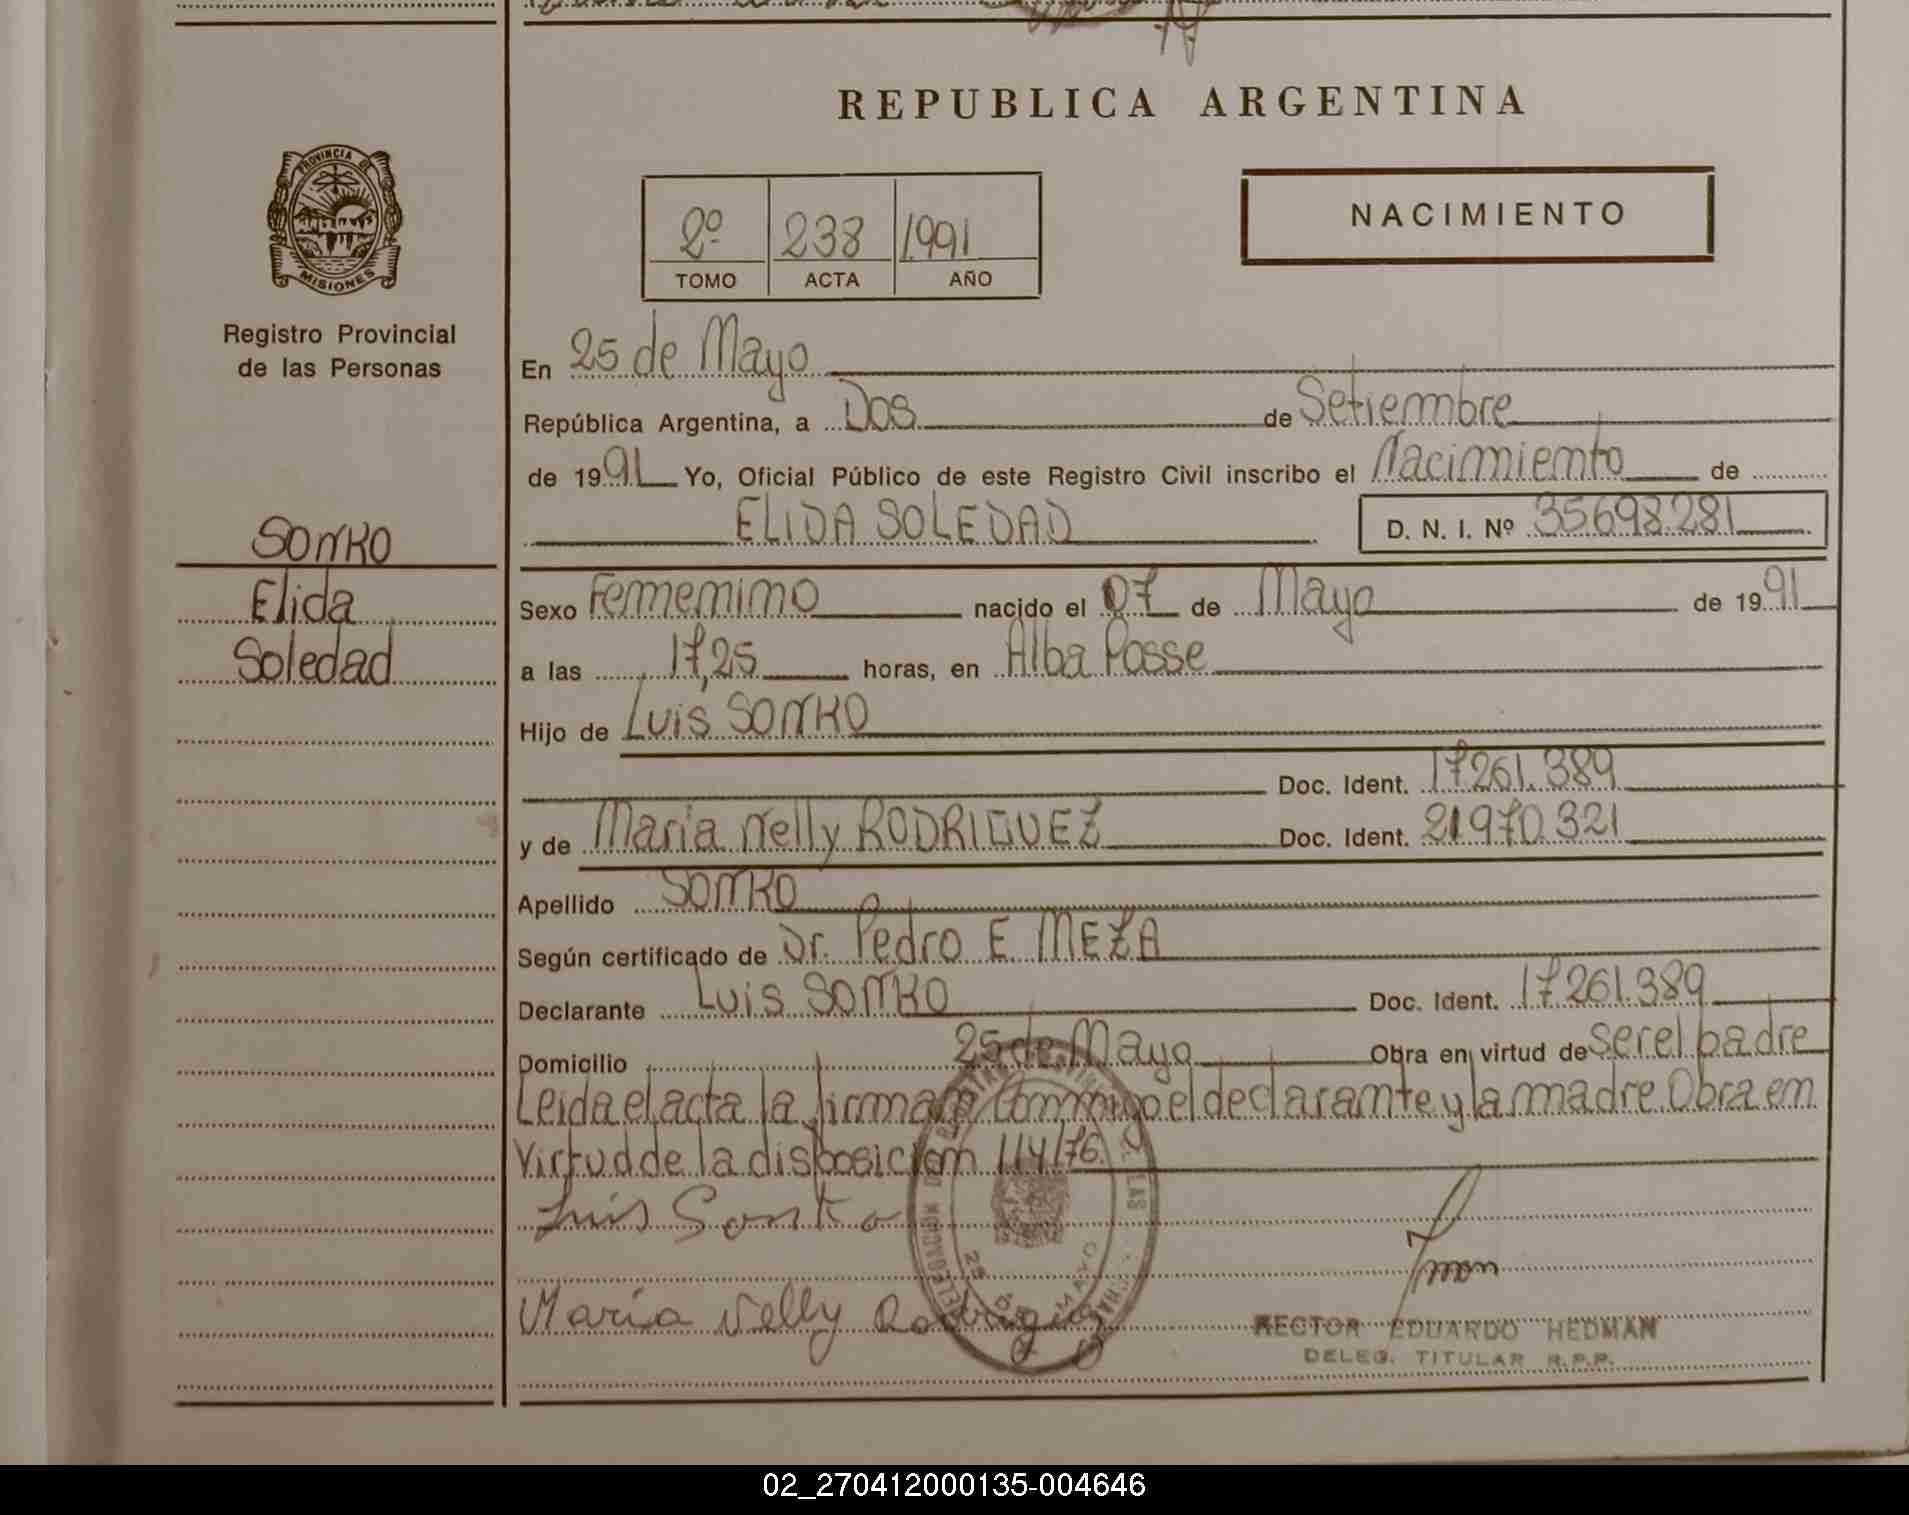 REPUBLICA ARGENTINA
PROVINCIA DE
MISIONES
Registro Provincial
de las Personas
2º 238 1991
TOMO ACTA AÑO
NACIMIENTO
En 25 de Mayo
República Argentina, a Dos de Setiembre
de 1991 Yo, Oficial Público de este Registro Civil inscribo el Nacimiento de
ELIDA SOLEDAD D. N. I. Nº 35698.281
SONKO
Elida
Soledad
Sexo Femenino nacido el 07 de Mayo de 1991
a las 17,25 horas, en Alba Posse
Hijo de Luis SONKO
Doc. Ident. 17261.389
y de Maria Nelly RODRIGUEZ Doc. Ident. 21970.321
Apellido SONKO
Según certificado de Dr. Pedro E. MEZA
Declarante Luis SONKO Doc. Ident. 17261.389
Domicilio 25 de Mayo Obra en virtud de ser el padre
Leida el acta la firman Conmigo el declarante y la madre. Obra en
Virtud de la disposicion 114/76.
Luis Sonko
Maria Nelly Rodriguez
25 DE MAYO
HECTOR EDUARDO HEDMAN
DELEG. TITULAR R.P.P.
02_270412000135-004646